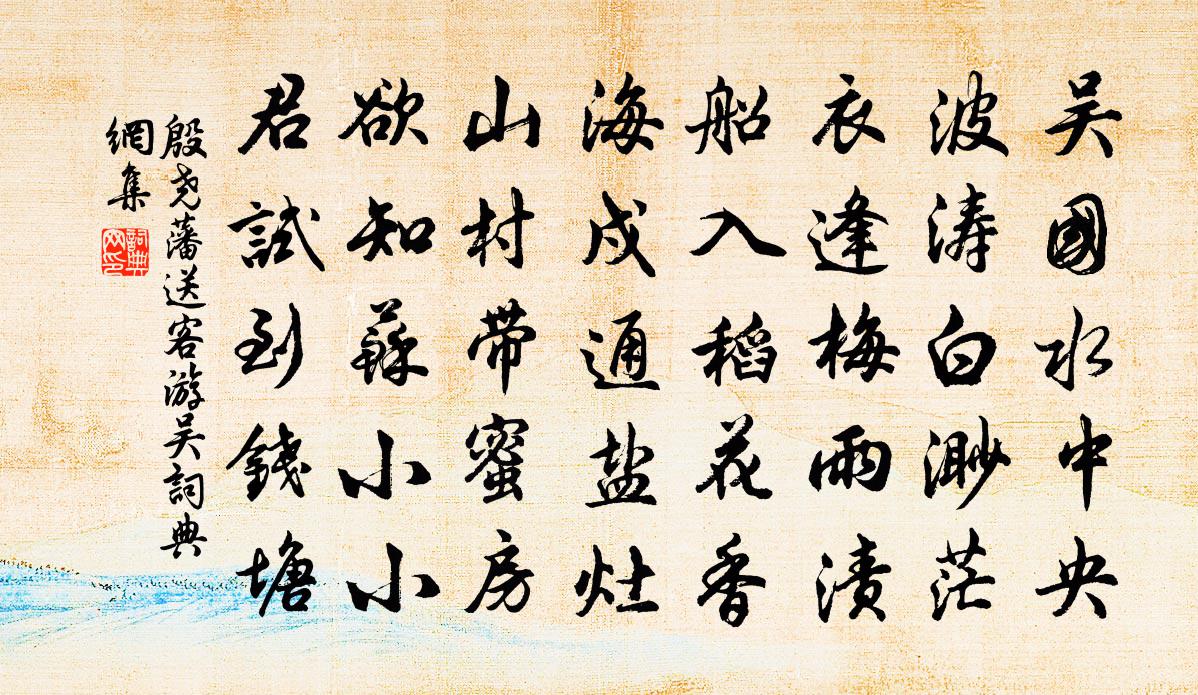 吴國水中央
波涛白渺茫
衣逢梅雨渍
船入稻花香
海戍通盐灶
山村带蜜房
欲知蘇小小
君試到錢塘
殷尧藩送客游吴詞典
網集
詞典網印